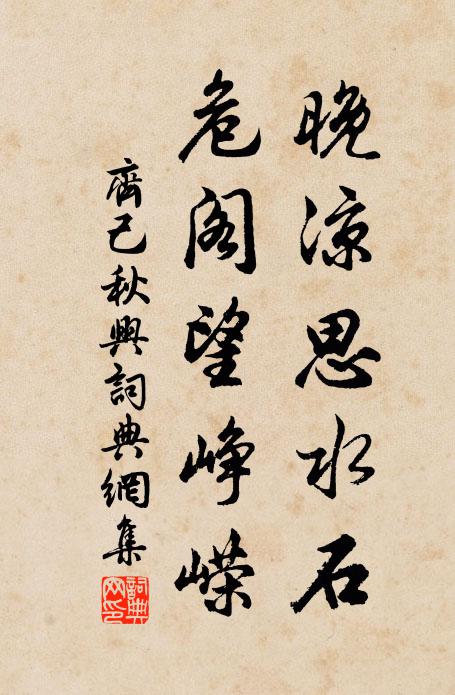 晚凉思水石
危阁望峥嵘
齊己秋興詞典網集
詞典
网印